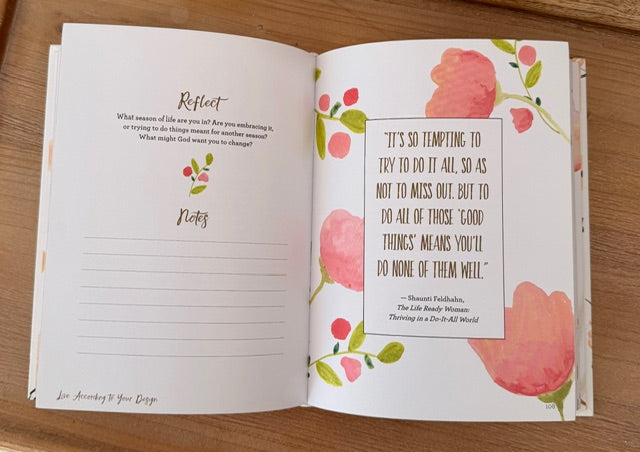 Reflect
What season of life are you in? Are you embracing it,
or trying to do things meant for another season?
What might God want you to change?
Notes
Live According to Your Design
"IT'S SO TEMPTING TO
TRY TO DO IT ALL, SO AS
NOT TO MISS OUT. BUT TO
DO ALL OF THOSE 'GOOD
THINGS' MEANS YOU'LL
DO NONE OF THEM WELL."
— Shaunti Feldhahn,
The Life Ready Woman:
Thriving in a Do-It-All World